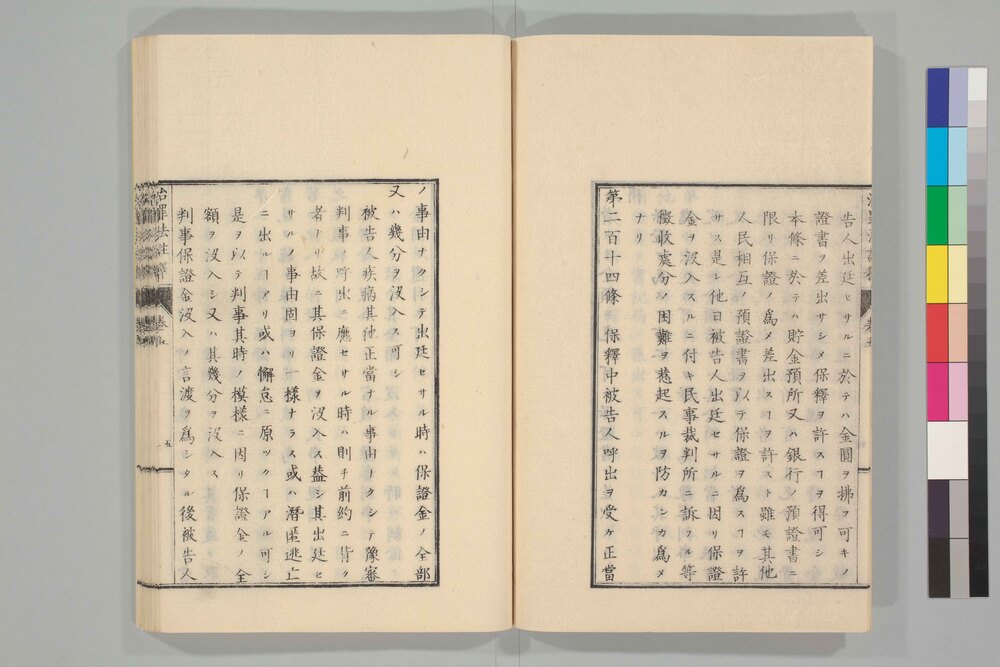 告人出廷セサルニ於テハ金圓ヲ拂フ可キノ
證書ヲ差出サシメ保釋ヲ許スヿヲ得可シ
本條ニ於テハ貯金預所又ハ銀行ノ預證書ニ
限リ保證ノ爲メ差出スヿヲ許スト雖モ其他
人民相互ノ預證書ヲ以テ保證ヲ爲スヿヲ許
サス是レ他日被告人出廷セサルニ因リ保證
金ヲ沒入スルニ付キ民事裁判所ニ訴フル等
徵收處分ノ困難ヲ惹起スルヲ防カンカ爲メ
ナリ
第二百十四條 保釋中被告人呼出ヲ受ケ正當
ノ事由ナクシテ出廷セサル時ハ保證金ノ全部
又ハ幾分ヲ沒入ス可シ
被告人疾病其他正當ナル事由ナクシテ豫審
判事ノ呼出ニ應セサル時ハ則チ前約ニ背ク
者ナリ故ニ其保證金ヲ沒入ス葢シ其出廷セ
サルノ事由固ヨリ一樣ナラス或ハ潛匿逃亡
ニ出ルヿアリ或ハ懈怠ニ原ツクヿアル可シ
是ヲ以テ判事其時ノ模樣ニ因リ保證金ノ全
額ヲ沒入シ又ハ其幾分ヲ沒入ス
判事保證金沒入ノ言渡ヲ爲シタル後被告人
治罪法註釋 卷 五